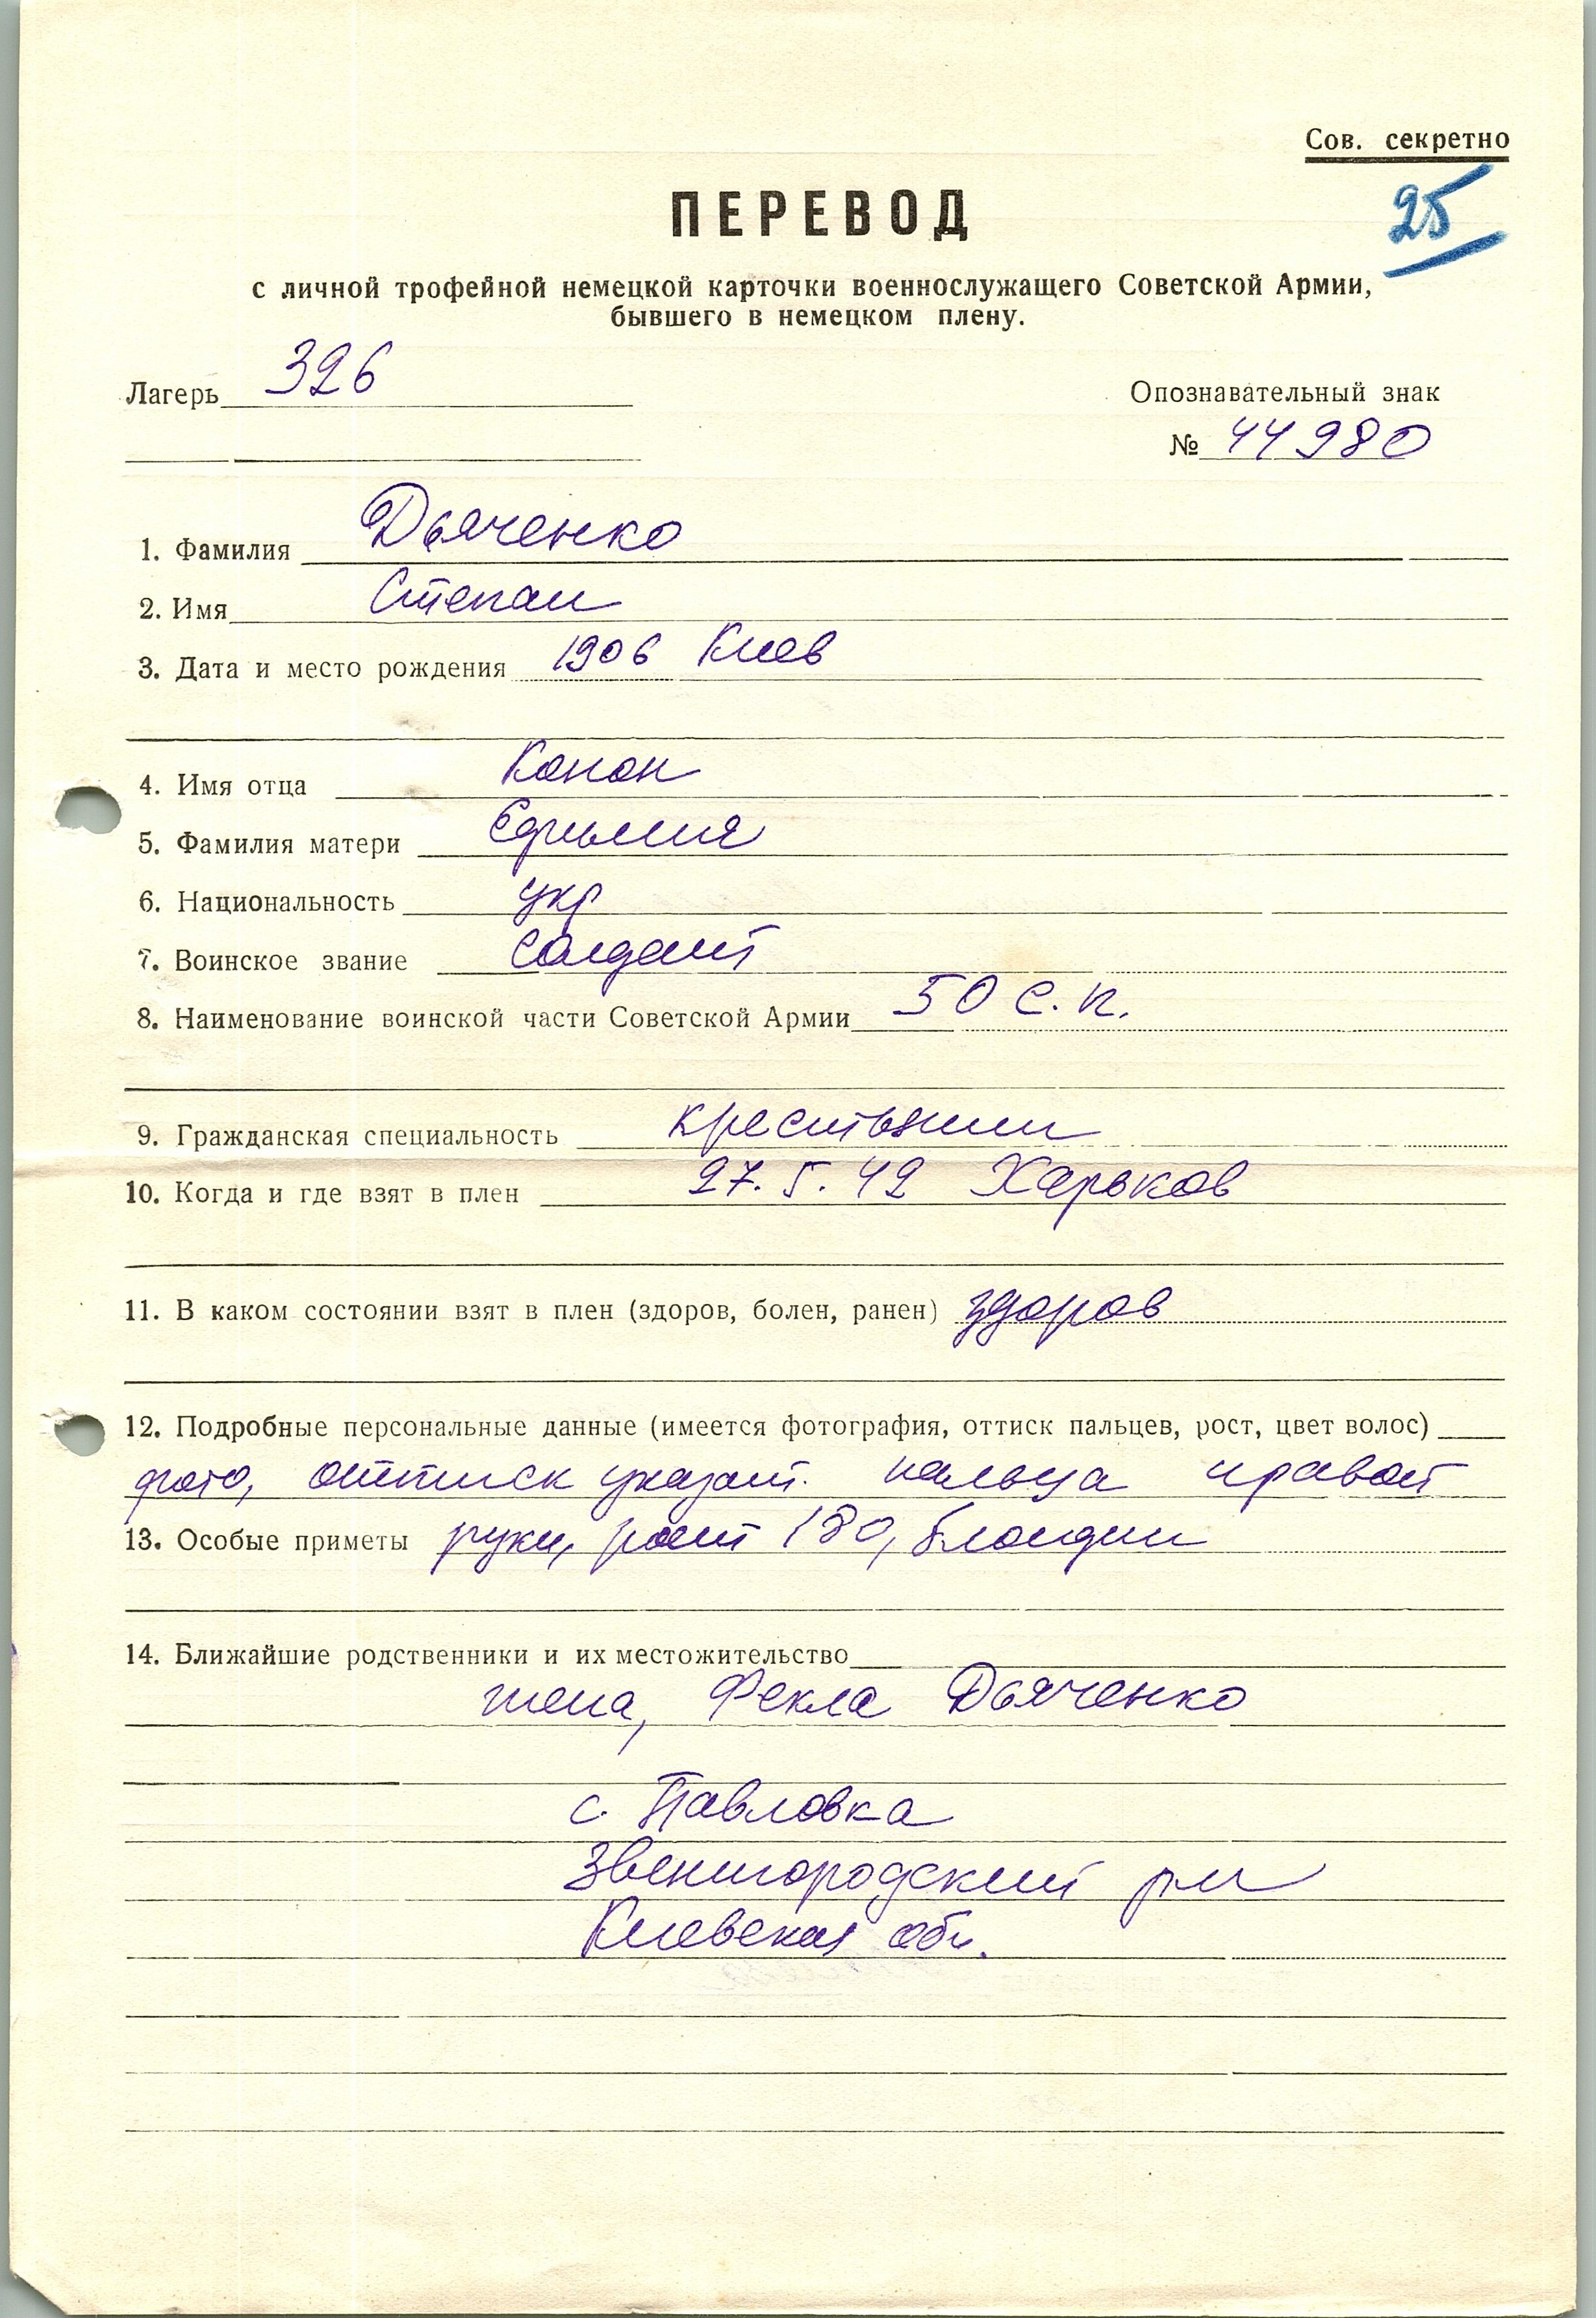 Сов. секретно
25
ПЕРЕВОД
с личной трофейной немецкой карточки военнослужащего Советской Армии,
бывшего в немецком плену.
Лагерь 326
Опознавательный знак
№ 44980
1. Фамилия Дьяченко
2. Имя Степан
3. Дата и место рождения 1906 Киев
4. Имя отца Конон
5. Фамилия матери Ефимия
6. Национальность укр
7. Воинское звание Солдат
8. Наименование воинской части Советской Армии 50 с.п.
9. Гражданская специальность крестьянин
10. Когда и где взят в плен 27.5.42 Харьков
11. В каком состоянии взят в плен (здоров, болен, ранен) здоров
12. Подробные персональные данные (имеется фотография, оттиск пальцев, рост, цвет волос)
фото, оттиск указат. пальца правой
13. Особые приметы руки, рост 180, блондин
14. Ближайшие родственники и их местожительство
жена, Фекла Дьяченко
с. Павловка
Звенигородский р-н
Киевская обл.